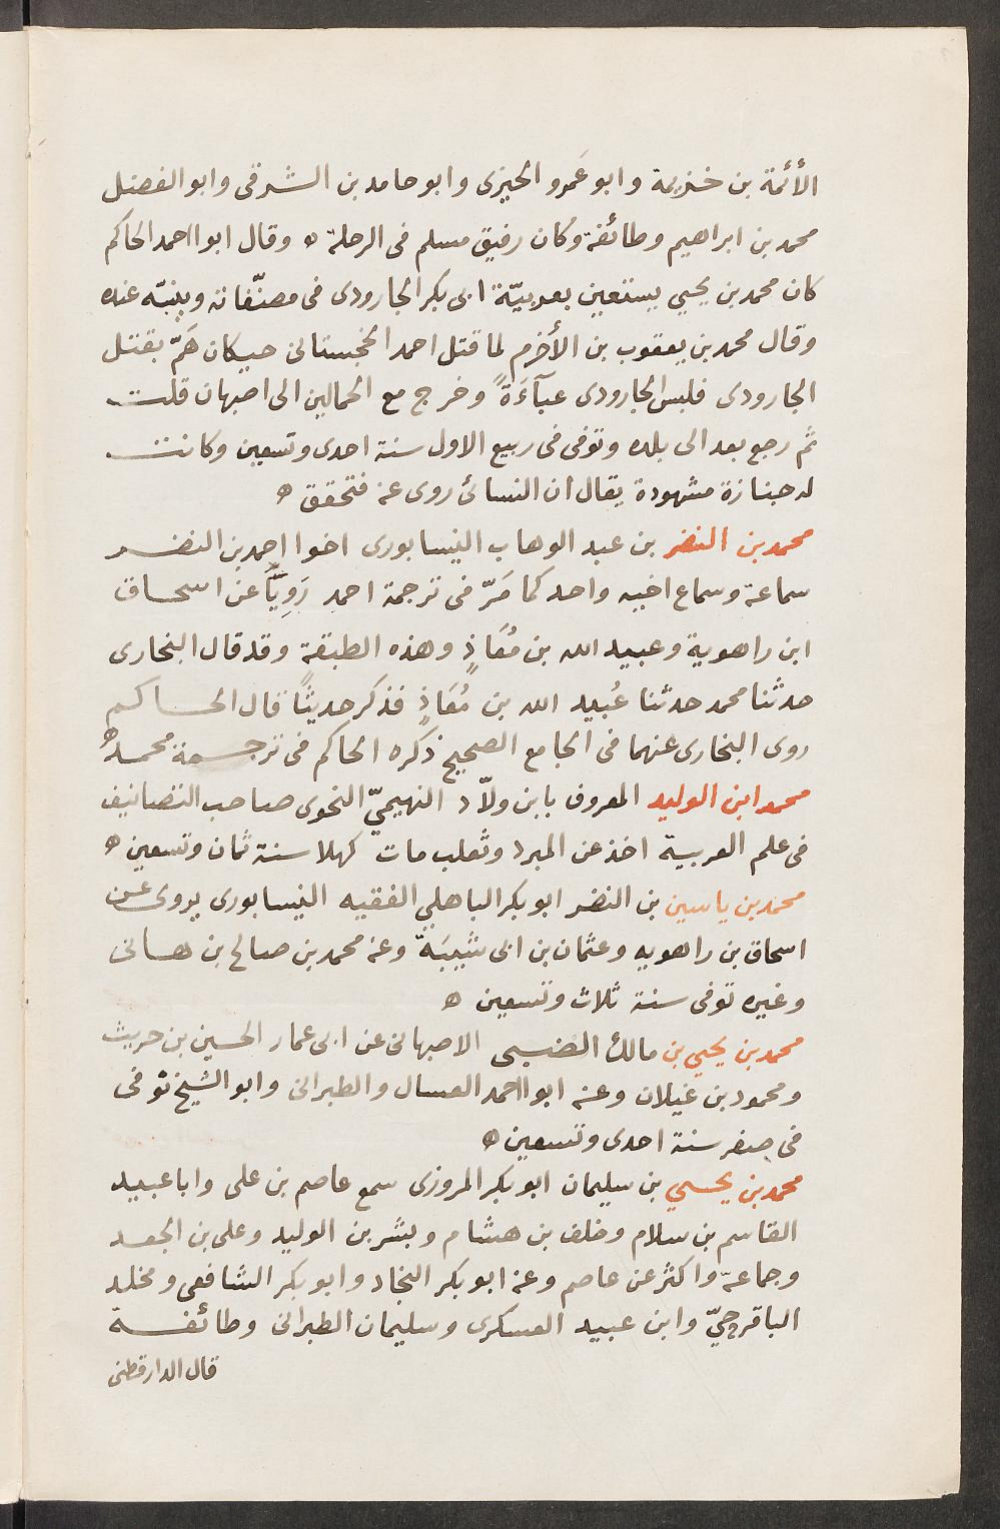 الأئمة بن خزيمة وابو عَمرو الحيزى وابو حامد بن الشرقى وابو الفضل
محمد بن ابراهيم وطائفة وكان رفيق مسلم فى الرحلة ه وقال ابو ااحمد الحاكم
كان محمد بن يحيي يستعين بعربيّة ابى بكر الجارودى فى مصنّفاته وبينبّه عنده
وقال محمد بن يعقوب بن الأخرم لما قتل احمد الخجستانى حيكان هَمّ بقتل
الجارودى فلبس الجارودى عبآءَةً وخرج مع الحمالين الى اصبهان قلت
ثم رجع بعد الى بلده وتوفى فى ربيع الاول سنة احدى وتسعين وكانت
له جنازة مشهودة يقال ان النسائ روى عنه فتحقق ه
محمد بن النضر بن عبد الوهاب النيسابورى اخوا احمد بن النضر
سماعه وسماع اخيه واحد كما مَرّ فى ترجمة احمد رَوِيَّا عن اسحاق
ابن راهوية وعبيد الله بن مُعَاذٍ وهذه الطبقة وقد قال البخارى
حدثنا محمد حدثنا عُبيد الله بن مُعَاذٍ فذكر حديثًا قال الحاكم
روى البخارى عنهما فى الجامع الصحيح ذكره الحاكم فى ترجمة محمد ه
محمد ابن الوليد المعروف بابن ولاّد النهيميّ النحوى صاحب التصانيف
فى علم العربية اخذ عن المبرد وثعلب مات كهلا سنة ثمان وتسعين ه
محمد بن ياسين بن النضر ابو بكر الباهلي الفقيه النيسابورى يروى عن
اسحاق بن راهويه وعثمان بن ابى شيبَةّ وعنه محمد بن صالح بن هانى
وغيره توفى سنة ثلاث وتسعين ه
محمد بن يحيي بن مالك الضبى الاصبهانى عن ابى عمار الحسين بن حريث
ومحمود بن غيلان وعنه ابو ااحمد العسال والطبرانى وابو الشيخ توفى
فى صفر سنة احدى وتسعين ه
محمد بن يحيي بن سليمان ابو بكر المروزى سمع عاصم بن على وابا عبيد
القاسم بن سلام وخلف بن هشام وبشر بن الوليد وعلى بن الجعد
وجماعة واكثر عن عاصم وعنه ابو بكر النجاد وابو بكر الشافعى ومخلد
الباقرحيّ وابن عبيد العسكرى وسليمان الطبرانى وطائفة
قال الدارقطنى